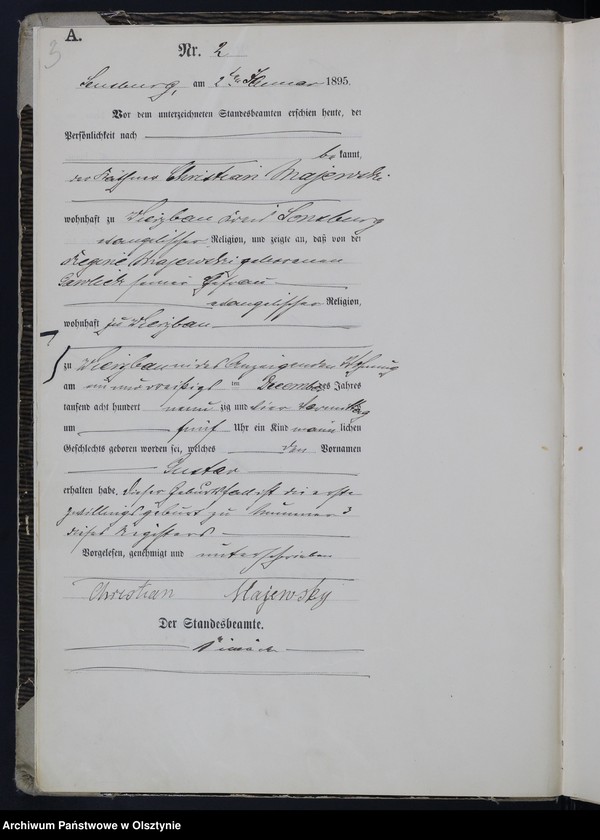 A.
3
Nr. 2
Sensburg, am 2ten Januar 1895.
Vor dem unterzeichneten Standesbeamten erschien heute, der
Persönlichkeit nach
bekannt,
der Käthner Christian Majewski
wohnhaft zu Sensburg
evangelischer Religion, und zeigte an, daß von der
Regine Majewski geborenen
seiner Ehefrau
evangelischer Religion,
wohnhaft zu
zu in des Anzeigenden Wohnung
am einunddreißigsten December des Jahres
tausend acht hundert neunzig und vier Vormittag
um fünf Uhr ein Kind männlichen
Geschlechts geboren worden sei, welches den Vornamen
Gustav
erhalten habe. Dieser Geburtsfall ist die erste
Zwillingsgeburt zu Nummer 3
dieses Registers
Vorgelesen, genehmigt und unterschrieben
Christian Majewsky
Der Standesbeamte.
Archiwum Państwowe w Olsztynie